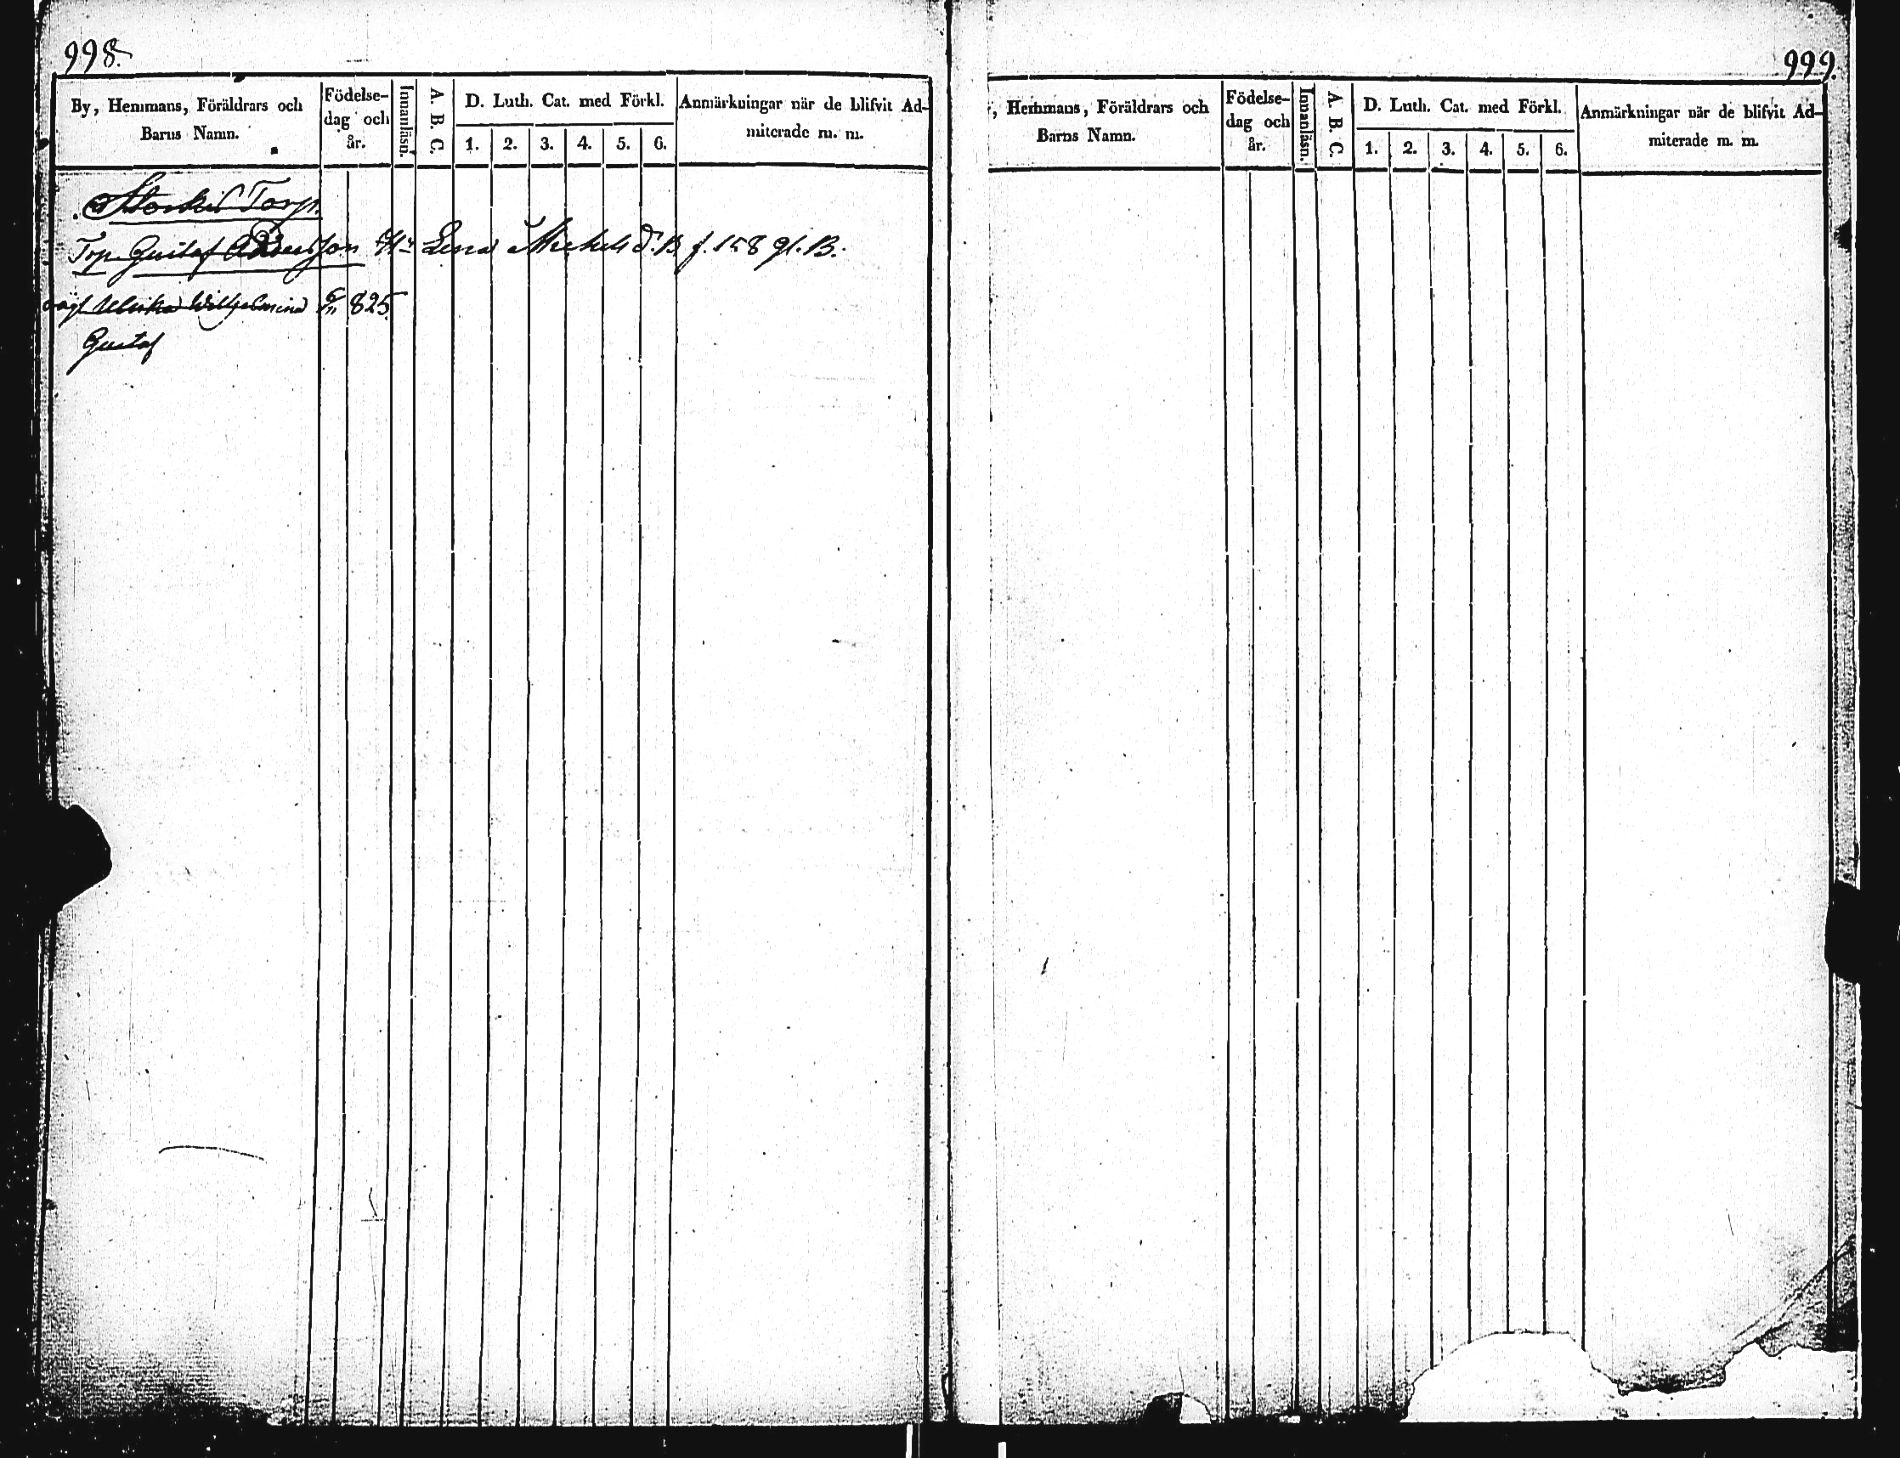 998.
By, Hemmans, Föräldrars och
Barns Namn.
Födelse-
dag och
år.
Innanläsn.
A. B. C.
D. Luth. Cat. med Förkl.
1. 2. 3. 4. 5. 6.
Anmärkningar när de blifvit Ad-
miterade m. m.
Torp.
Torp. Gustaf Andersson H:u Lena Michels d. B. f. 158 gl. B.
Ulrika Wilhelmina 825
Gustaf
999.
, Hemmans, Föräldrars och
Barns Namn.
Födelse-
dag och
år.
Innanläsn.
A. B. C.
D. Luth. Cat. med Förkl.
1. 2. 3. 4. 5. 6.
Anmärkningar när de blifvit Ad-
miterade m. m.